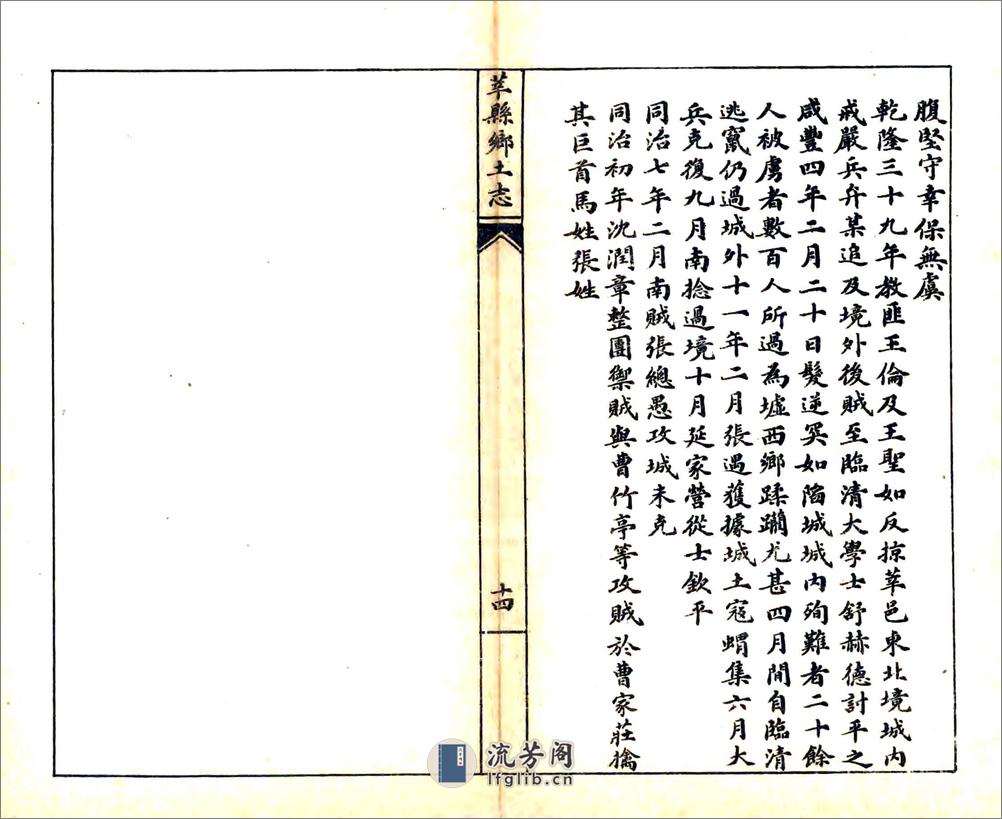 腹堅守幸保無虞
乾隆三十九年教匪王倫及王聖如反掠莘邑東北境城内
戒嚴兵弁某追及境外後賊至臨清大學士舒赫德討平之
咸豐四年二月二十日髮逆突如陷城城内殉難者二十餘
人被虜者數百人所過為墟西鄉蹂躪尤甚四月間自臨清
逃竄仍過城外十一年二月張遇獲據城土寇蝟集六月大
兵克復九月南捻過境十月延家營從士欽平
同治七年二月南賊張總愚攻城未克
同治初年沈潤章整團禦賊與曹竹亭等攻賊於曹家莊擒
其巨首馬姓張姓
莘縣鄉土志
十四
流芳阁
lfglib.cn